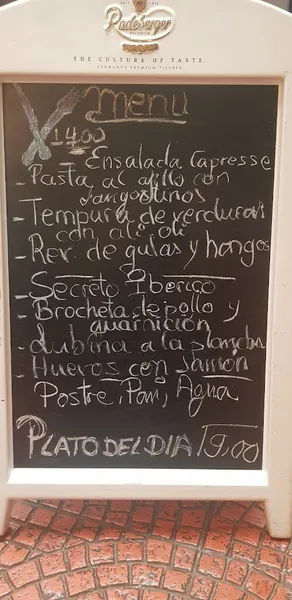 Radeberger
PILSNER
THE CULTURE OF TASTE.
GERMANY'S PREMIUM PILSNER
menu
14,00
- Ensalada Capresse
- Pasta al ajillo con
langostinos
- Tempura de verduras
con ali oli
- Rev. de gulas y hongos
- Secreto Iberico
- Brocheta de pollo y
guarnición
- Lubina a la plancha
- Huevos con Jamón
Postre, Pan, Agua
PLATO DEL DIA 9,00